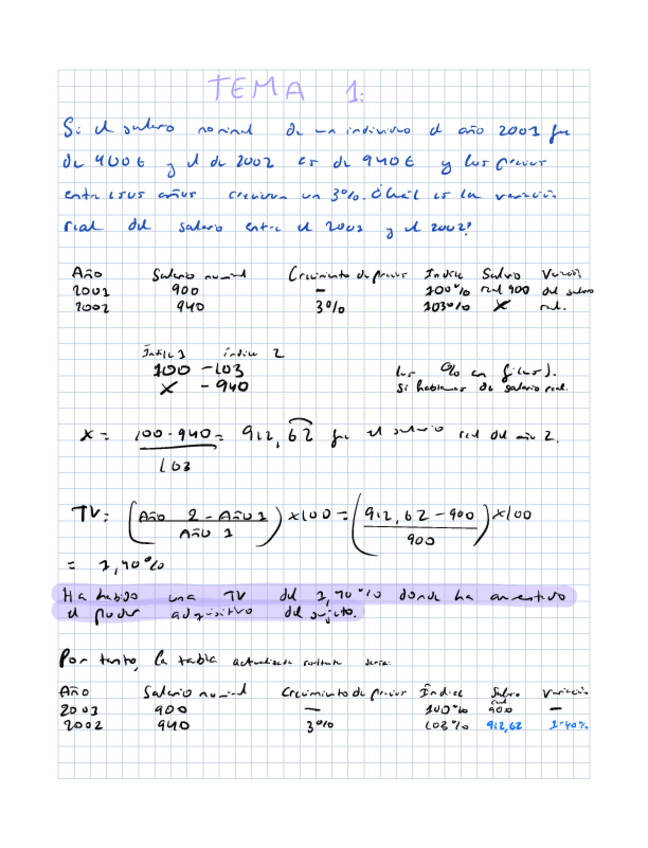 TEMA 1:
Si el salario nominal de un individuo el año 2001 fue
de 900€ y el de 2002 es de 940€ y los precios
entre esos años crecieron un 3%. ¿Cuál es la variación
real del salario entre el 2001 y el 2002?
Año Salario nominal Crecimiento de precios Índice Salario Variación
2001 900 — 100% real 900 del salario
2002 940 3% 103% X real.
Índice 1 índice 2
100 - 103
X - 940
los % en físico).
Si hablamos de salario real.
X = 100·940 = 912,62 fue el salario real del año 2.
103
TV: (Año 2 - Año 1) x100 = (912,62 - 900) x100
Año 1 900
= 1,40%
Ha habido una TV del 1,40% donde ha aumentado
el poder adquisitivo del sujeto.
Por tanto, la tabla actualizada sería:
Año Salario nominal Crecimiento de precios Índice Salario real Variación
2001 900 — 100% 900 —
2002 940 3% 103% 912,62 1'40%